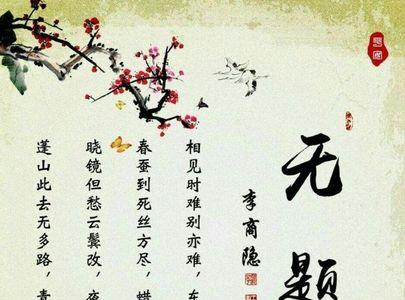 无题
李商隐
相见时难别亦难，东
春蚕到死丝方尽，蜡
晓镜但愁云鬓改，夜
蓬山此去无多路，青